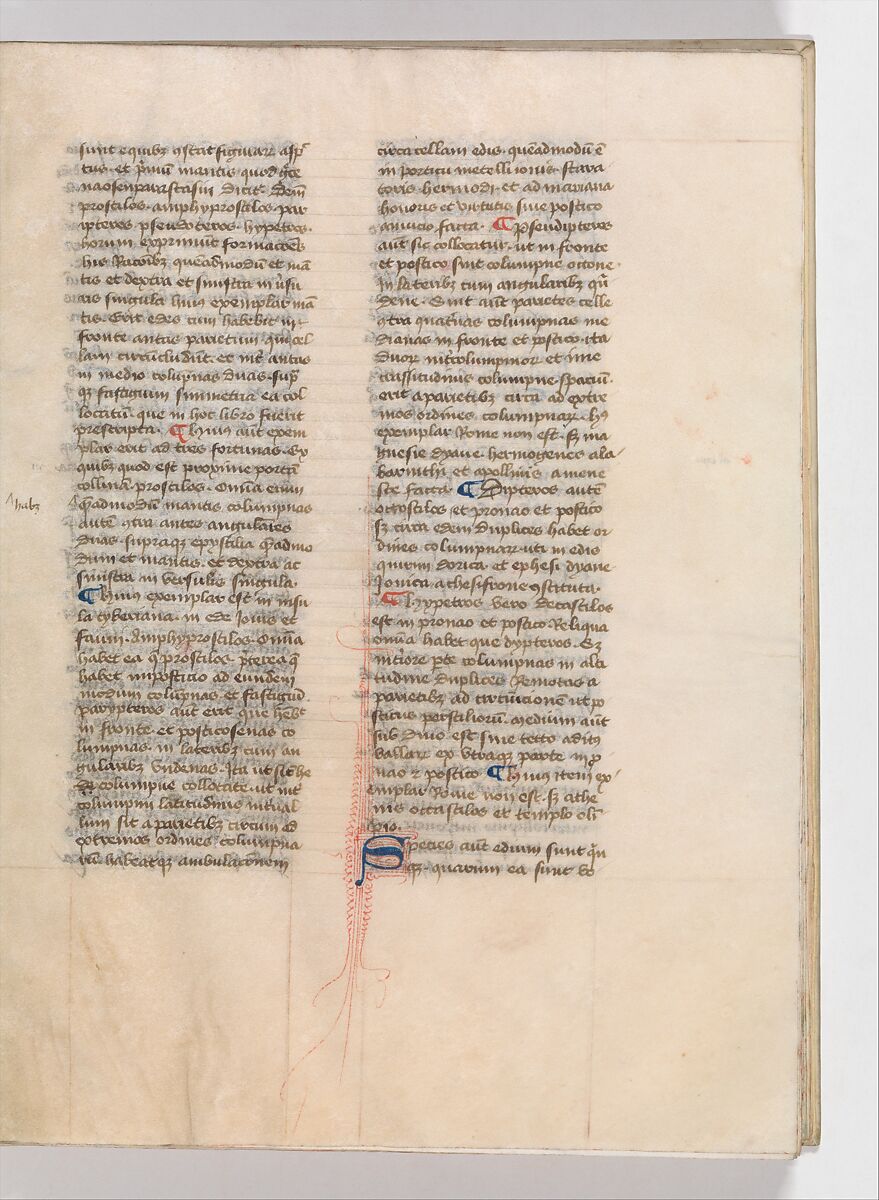 sunt equibȝ ꝯstat figurarꝝ aspc̄
tus. et p̄mū mantis quod g̃ce
naosenparastasin dicitᷣ. Dein̄
prostilos. amphyprostilos. par
ipteros pseudoteros. hypetros.
horum exprimūt formac̄oēs
his racōibȝ. queadmodū et mā
tis et dextra et sinistra in ūsu
ris singula huiꝰ exemplar mā
tis. Erit edes cum habebit in
fronte antas parietum qui cel
lam circūcludūt. et int̄ antas
in medio colupnas duas. sup̄
qȝ fastigium simmetria ea col
locatū que in hoc libro fuerit
prescripta. ¶ huiꝰ aūt exem
plar erit ad tres fortunas. Ex
quibȝ quod est proxime portā
collinā prostilos. Om̄ia enim
q̄admodū mantis columpnas
autē ꝯtra antes angulares
duas. supraqȝ epystilia q̄admo
dum et mantis. et dextra ac
sinistra in versuris singula.
¶ huiꝰ exemplar est in insu
la tyberiana. in ede Iouis et
fauni. Amphyprostilos. Om̄ia
habet ea q̄ prostilos. p̄terea q̄
habet inposticio ad eundem
modum colūpnas et fastigiū.
parypteros aūt erit que hēbt
in fronte. et posticosenas co
lumpnas in lateribȝ cum an
gularibȝ vndenas. Ita ut sit he
de columpne collocate. ut int̄
columpnii latitudinis int̄ual
lum sit a parietibȝ circum ad
extremos ordines columpna
rū. habeatqȝ ambulac̄onem
habȝ
circa cellam edis. queadmodū ē
in porticu metelli iouis. stara
toris hermodi. et ad mariana
honoris et virtutis sine postico
amucio facta. ¶ Pseudipteros
aūt sic collocatur. ut in fronte
et postico sint columpne octone
In lateribȝ cum angularibȝ qn̄
dene. Sint aūt parietes celle
ꝯtra quat̄nas columpnas me
dianas in fronte et postico. ita
duorꝝ int̄columpniorꝝ et ime
crassitudinis columpne. spaciū.
erit a parietibȝ circa ad extre
mos ordines columpnarꝝ. hꝰ
exemplar Rome non est. sȝ ma
gnesie dyane hermogenes ala
barinthi et apollinis a mene
ste facta. ¶ Dipteros autē
octostilos et pronao et postico
sȝ circa edem duplices habet or
dines columpnarꝝ. uti in edis
quirini dorica. et ephesi dyane
Ionica a thesifrone ꝯstituta.
¶ hypetros vero decastilos
est in pronao et postico Reliqua
om̄ia habet que dypteros. Sȝ
int̄iore pte columpnas in alti
tudine duplices Remotas a
parietibȝ ad circūicionē ut po
sticus peristiliorū. Medium aūt
sub diuo est sine tecto aditꝰ
vallarꝝ ex vtraqȝ parte in p̄o
nao et postico. ¶ huiꝰ item ex
emplar Rome non est. sȝ athe
nis octastilos et templo oli
pio.
Species aūt edium sunt qn̄
qȝ. quarum ea sunt vo